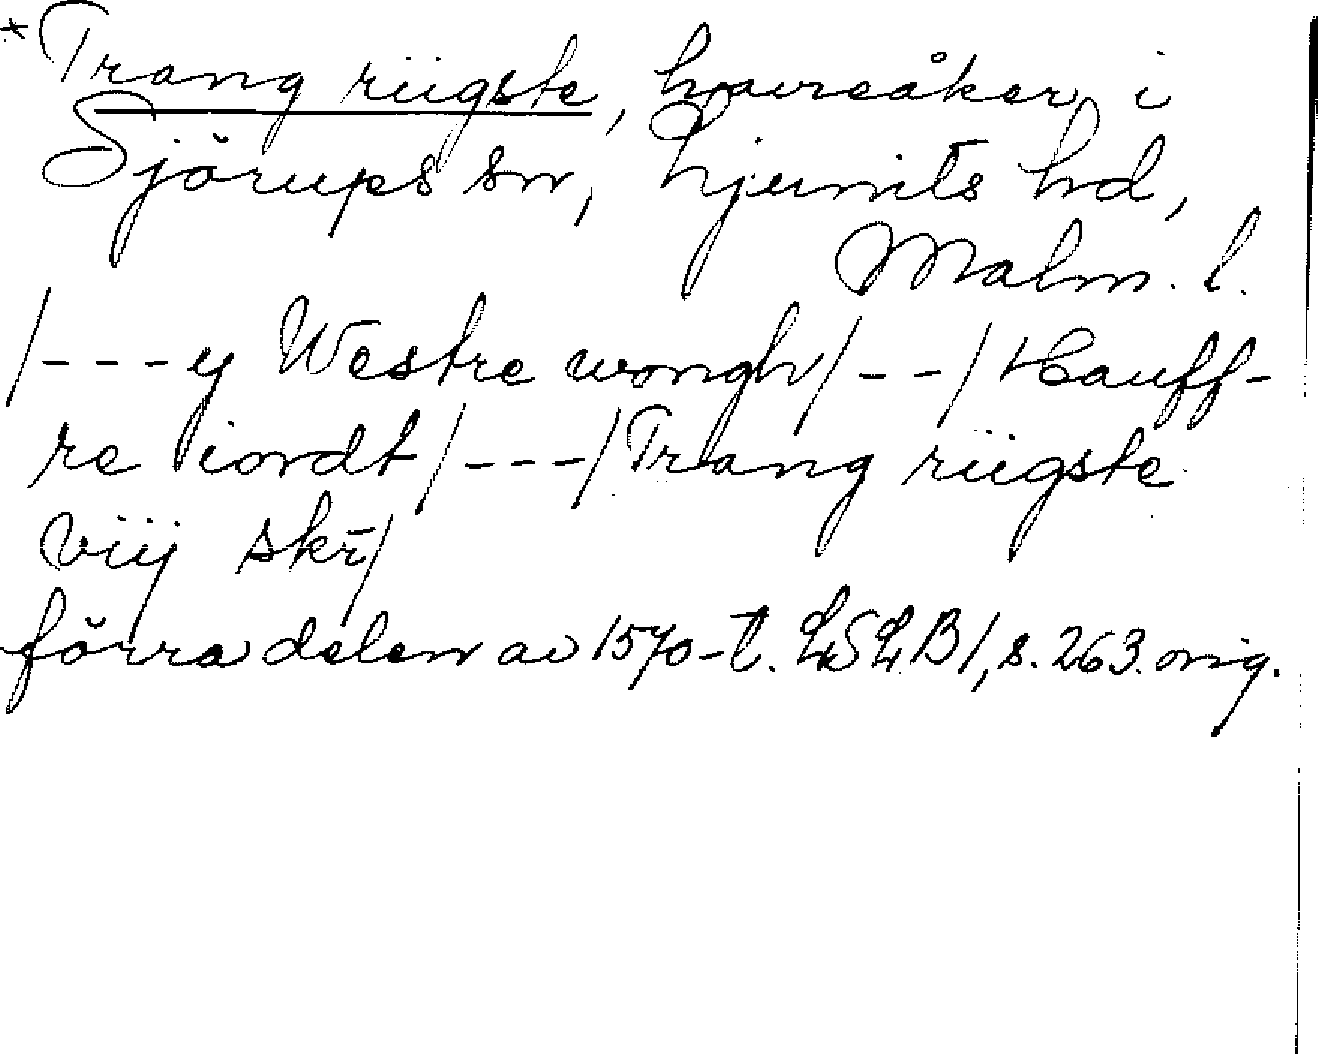 *Trang riigste, havreåker i
Sjörups sn, Ljunits hd,
Malm. l.
/---y Westre wongh/--/Hauff-
re iordt/---/Trang riigste
viij skr̄/
förra delen av 1570-t. LSLB1, s. 263. orig.